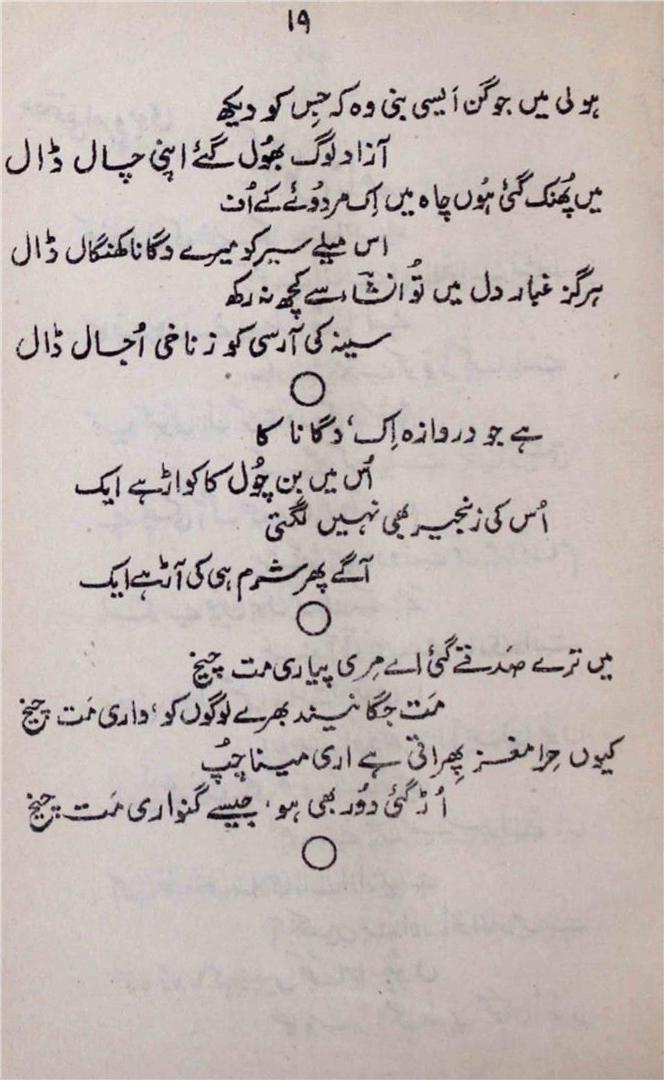 ۱۹
ہولی میں جوگن اَیسی بنی وہ کہ جِس کو دیکھ
آزاد لوگ بھُول گئے اپنی چال ڈال
میں پُھنک گئی ہُوں چاہ میں اِک مردوُئے کے اُف
اس میلے سیر کو میرے دگانا کھنگال ڈال
ہرگز غبار دل میں تُو انشاؔء سے کچھ نہ رکھ
سینہ کی آرسی کو زناخی اُجال ڈال
ہے جو دروازہ اِک، دگانا کا
اُس میں بن چُول کا کواڑ ہے ایک
اُس کی زنجیر بھی نہیں لگتی
آگے پھر شرم ہی کی آڑ ہے ایک
میں ترے صَدقے گئی اے مِری پیاری مت چیخ
مَت جگا نیند بھرے لوگوں کو، داری مَت چیخ
کیوں مِرا مغز پِھراتی ہے اری مینا چُپ
اُڑ گئی دوُر بھی ہو، جیسے گنواری مَت چیخ